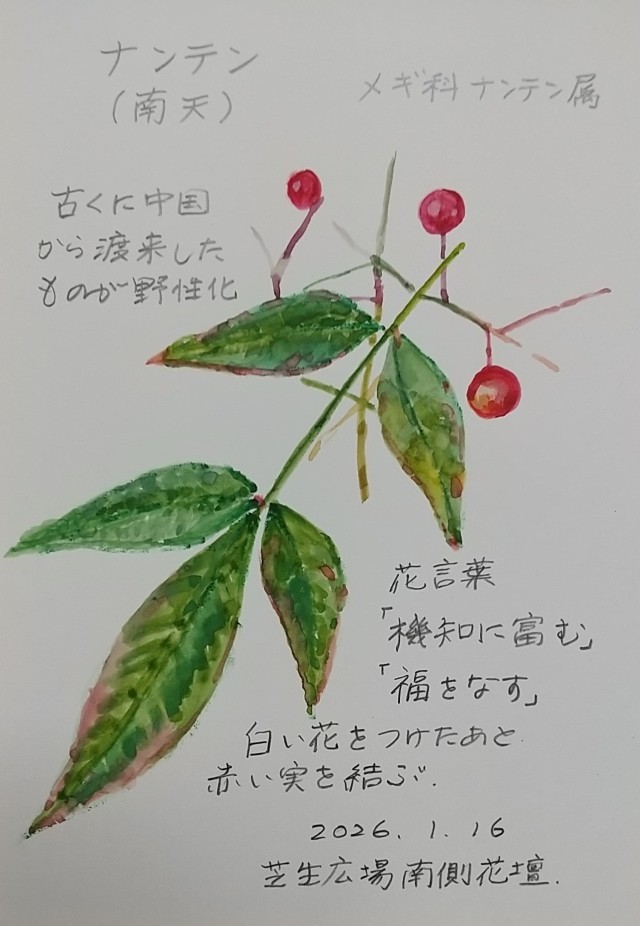 ナンテン
(南天)
メギ科ナンテン属
古くに中国
から渡来した
ものが野性化
花言葉
「機知に富む」
「福をなす」
白い花をつけたあと
赤い実を結ぶ.
2026.1.16
芝生広場南側花壇.